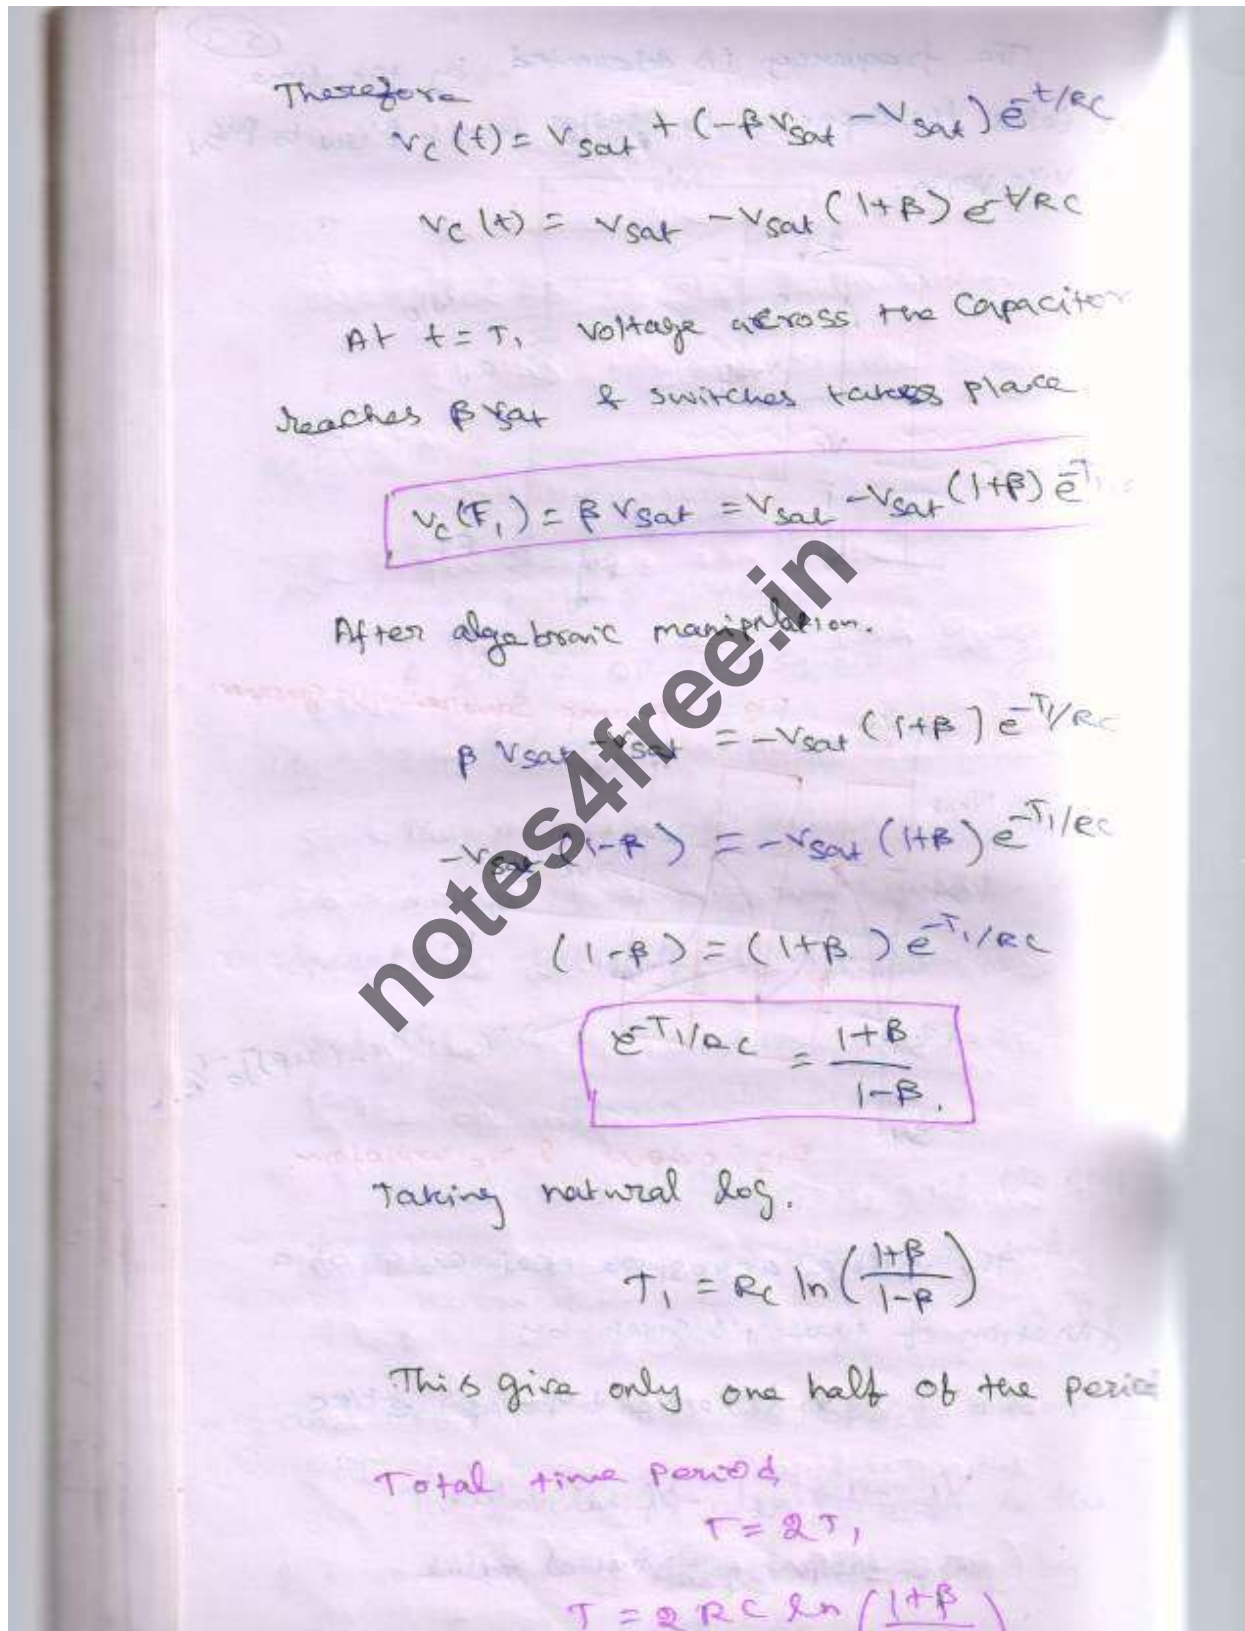 Therefore
Vc(t) = Vsat + (-β Vsat - Vsat) e^-t/RC
Vc(t) = Vsat - Vsat (1+β) e^-t/RC
At t = T1 voltage across the Capacitor
reaches β Vsat & switches takes place
Vc(T1) = β Vsat = Vsat - Vsat (1+β) e^-T1
After algebraic manipulation.
β Vsat - Vsat = -Vsat (1+β) e^-T1/RC
-Vsat (1-β) = -Vsat (1+β) e^-T1/RC
(1-β) = (1+β) e^-T1/RC
e^-T1/RC = 1+β / 1-β.
Taking natural log.
T1 = RC ln (1+β / 1-β)
This give only one half of the
Total time period,
T = 2T1
T = 2 RC ln (1+β
notes4free.in